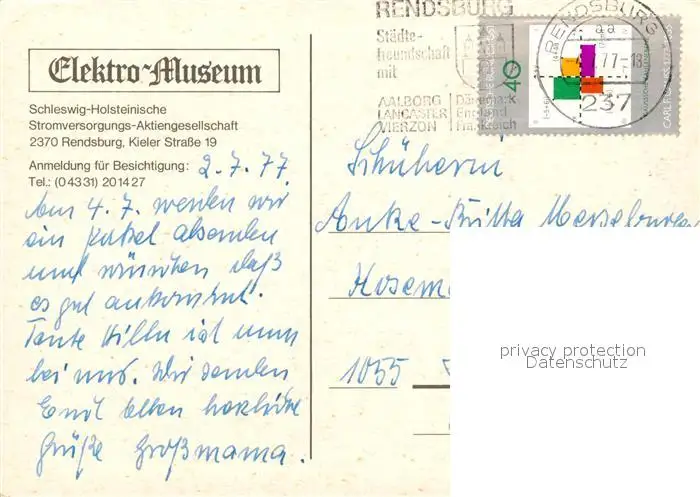 Elektro-Museum
Schleswig-Holsteinische
Stromversorgungs-Aktiengesellschaft
2370 Rendsburg, Kieler Straße 19
Anmeldung für Besichtigung:
Tel.: (0 43 31) 20 14 27
2.7.77.
Am 4.7. werden wir
ein Paket absenden
und wünschen daß
es gut ankommt.
Tante Hilla ist nun
bei uns. Wir senden
Euch allen herzliche
Grüße Großmama.
RENDSBURG
Städte-
freundschaft
mit
AALBORG Dänemark
LANCASTER England
VIERZON Frankreich
RENDSBURG
aa
.77-18
237
40
CARL F. GAUSS
Schülerin
Anke-Britta
1055
privacy protection
Datenschutz